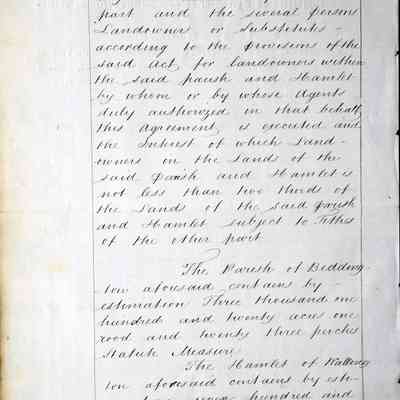 part and the several persons
Landowners or Substitutes -
according to the provisions of the
said Act, for Landowners within
the said parish and Hamlet
by whom or by whose Agents
duly authorized in that behalf
this Agreement, is executed and
the Interest of which Land -
owners in the Lands of the
said parish and Hamlet is
not less than two thirds of
the Lands of the said parish
and Hamlet subject to Tithes
of the other part
The Parish of Bedding-
ton aforesaid contains by -
estimation Three thousand one
hundred and twenty acres one
rood and twenty three perches
Statute Measure
The Hamlet of Walling
ton aforesaid contains by esti-
hundred and